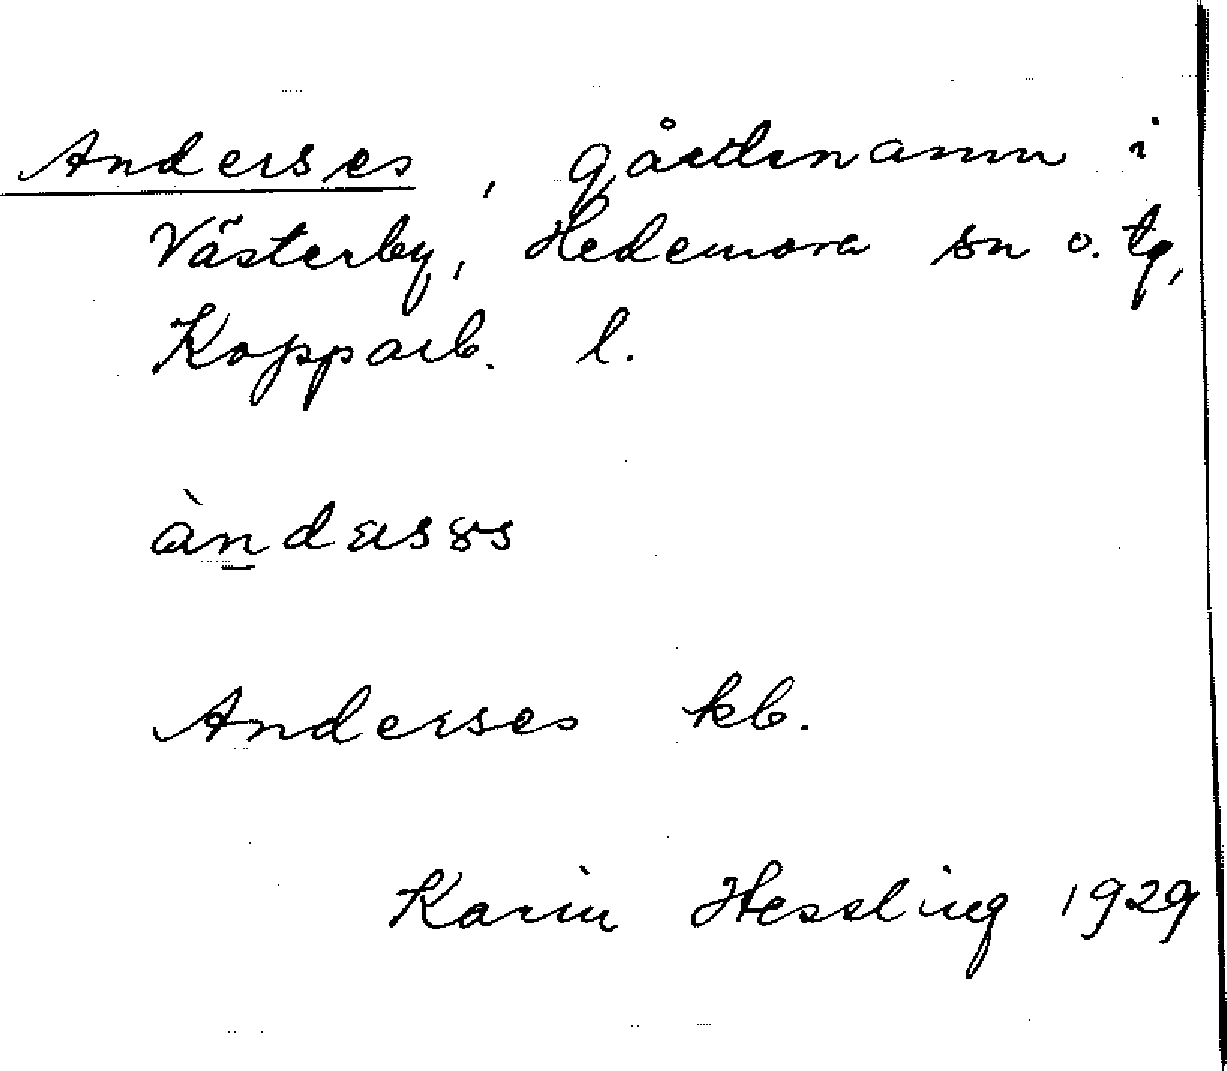 Anderses, gårdsnamn i
Västerby, Hedemora sn o. tg,
Kopparb. l.
Anderses kb.
Karin Hessling 1929